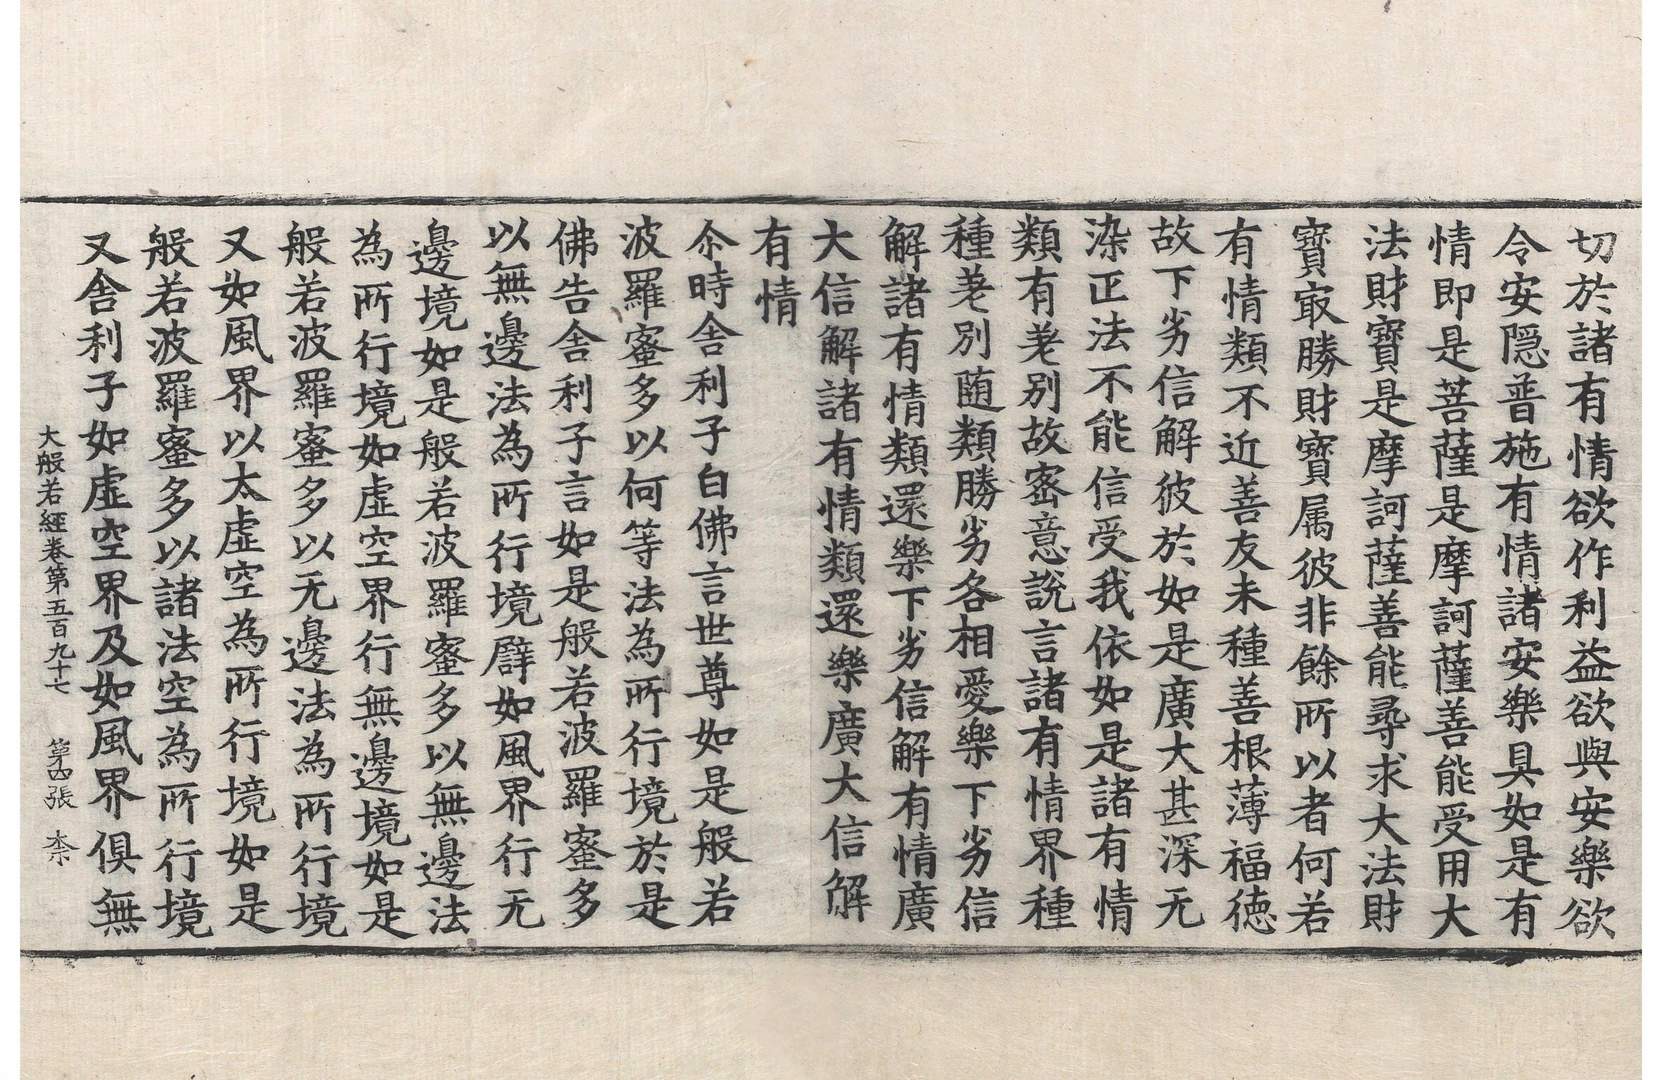 切於諸有情欲作利益欲與安樂欲
令安隱普施有情諸安樂具如是有
情即是菩薩是摩訶薩善能受用大
法財寶是摩訶薩善能尋求大法財
寶㝡勝財寶属彼非餘所以者何若
有情類不近善友未種善根薄福德
故下劣信解彼於如是廣大甚深无
染正法不能信受我依如是諸有情
類有差別故密意說言諸有情界種
種差別随類勝劣各相愛樂下劣信
解諸有情類還樂下劣信解有情廣
大信解諸有情類還樂廣大信解
有情
尒時舍利子白佛言世尊如是般若
波羅蜜多以何等法為所行境於是
佛告舍利子言如是般若波羅蜜多
以無邊法為所行境譬如風界行无
邊境如是般若波羅蜜多以無邊法
為所行境如虛空界行無邊境如是
般若波羅蜜多以无邊法為所行境
又如風界以太虛空為所行境如是
般若波羅蜜多以諸法空為所行境
又舍利子如虛空界及如風界俱無
大般若經卷第五百九十七 第四張 柰